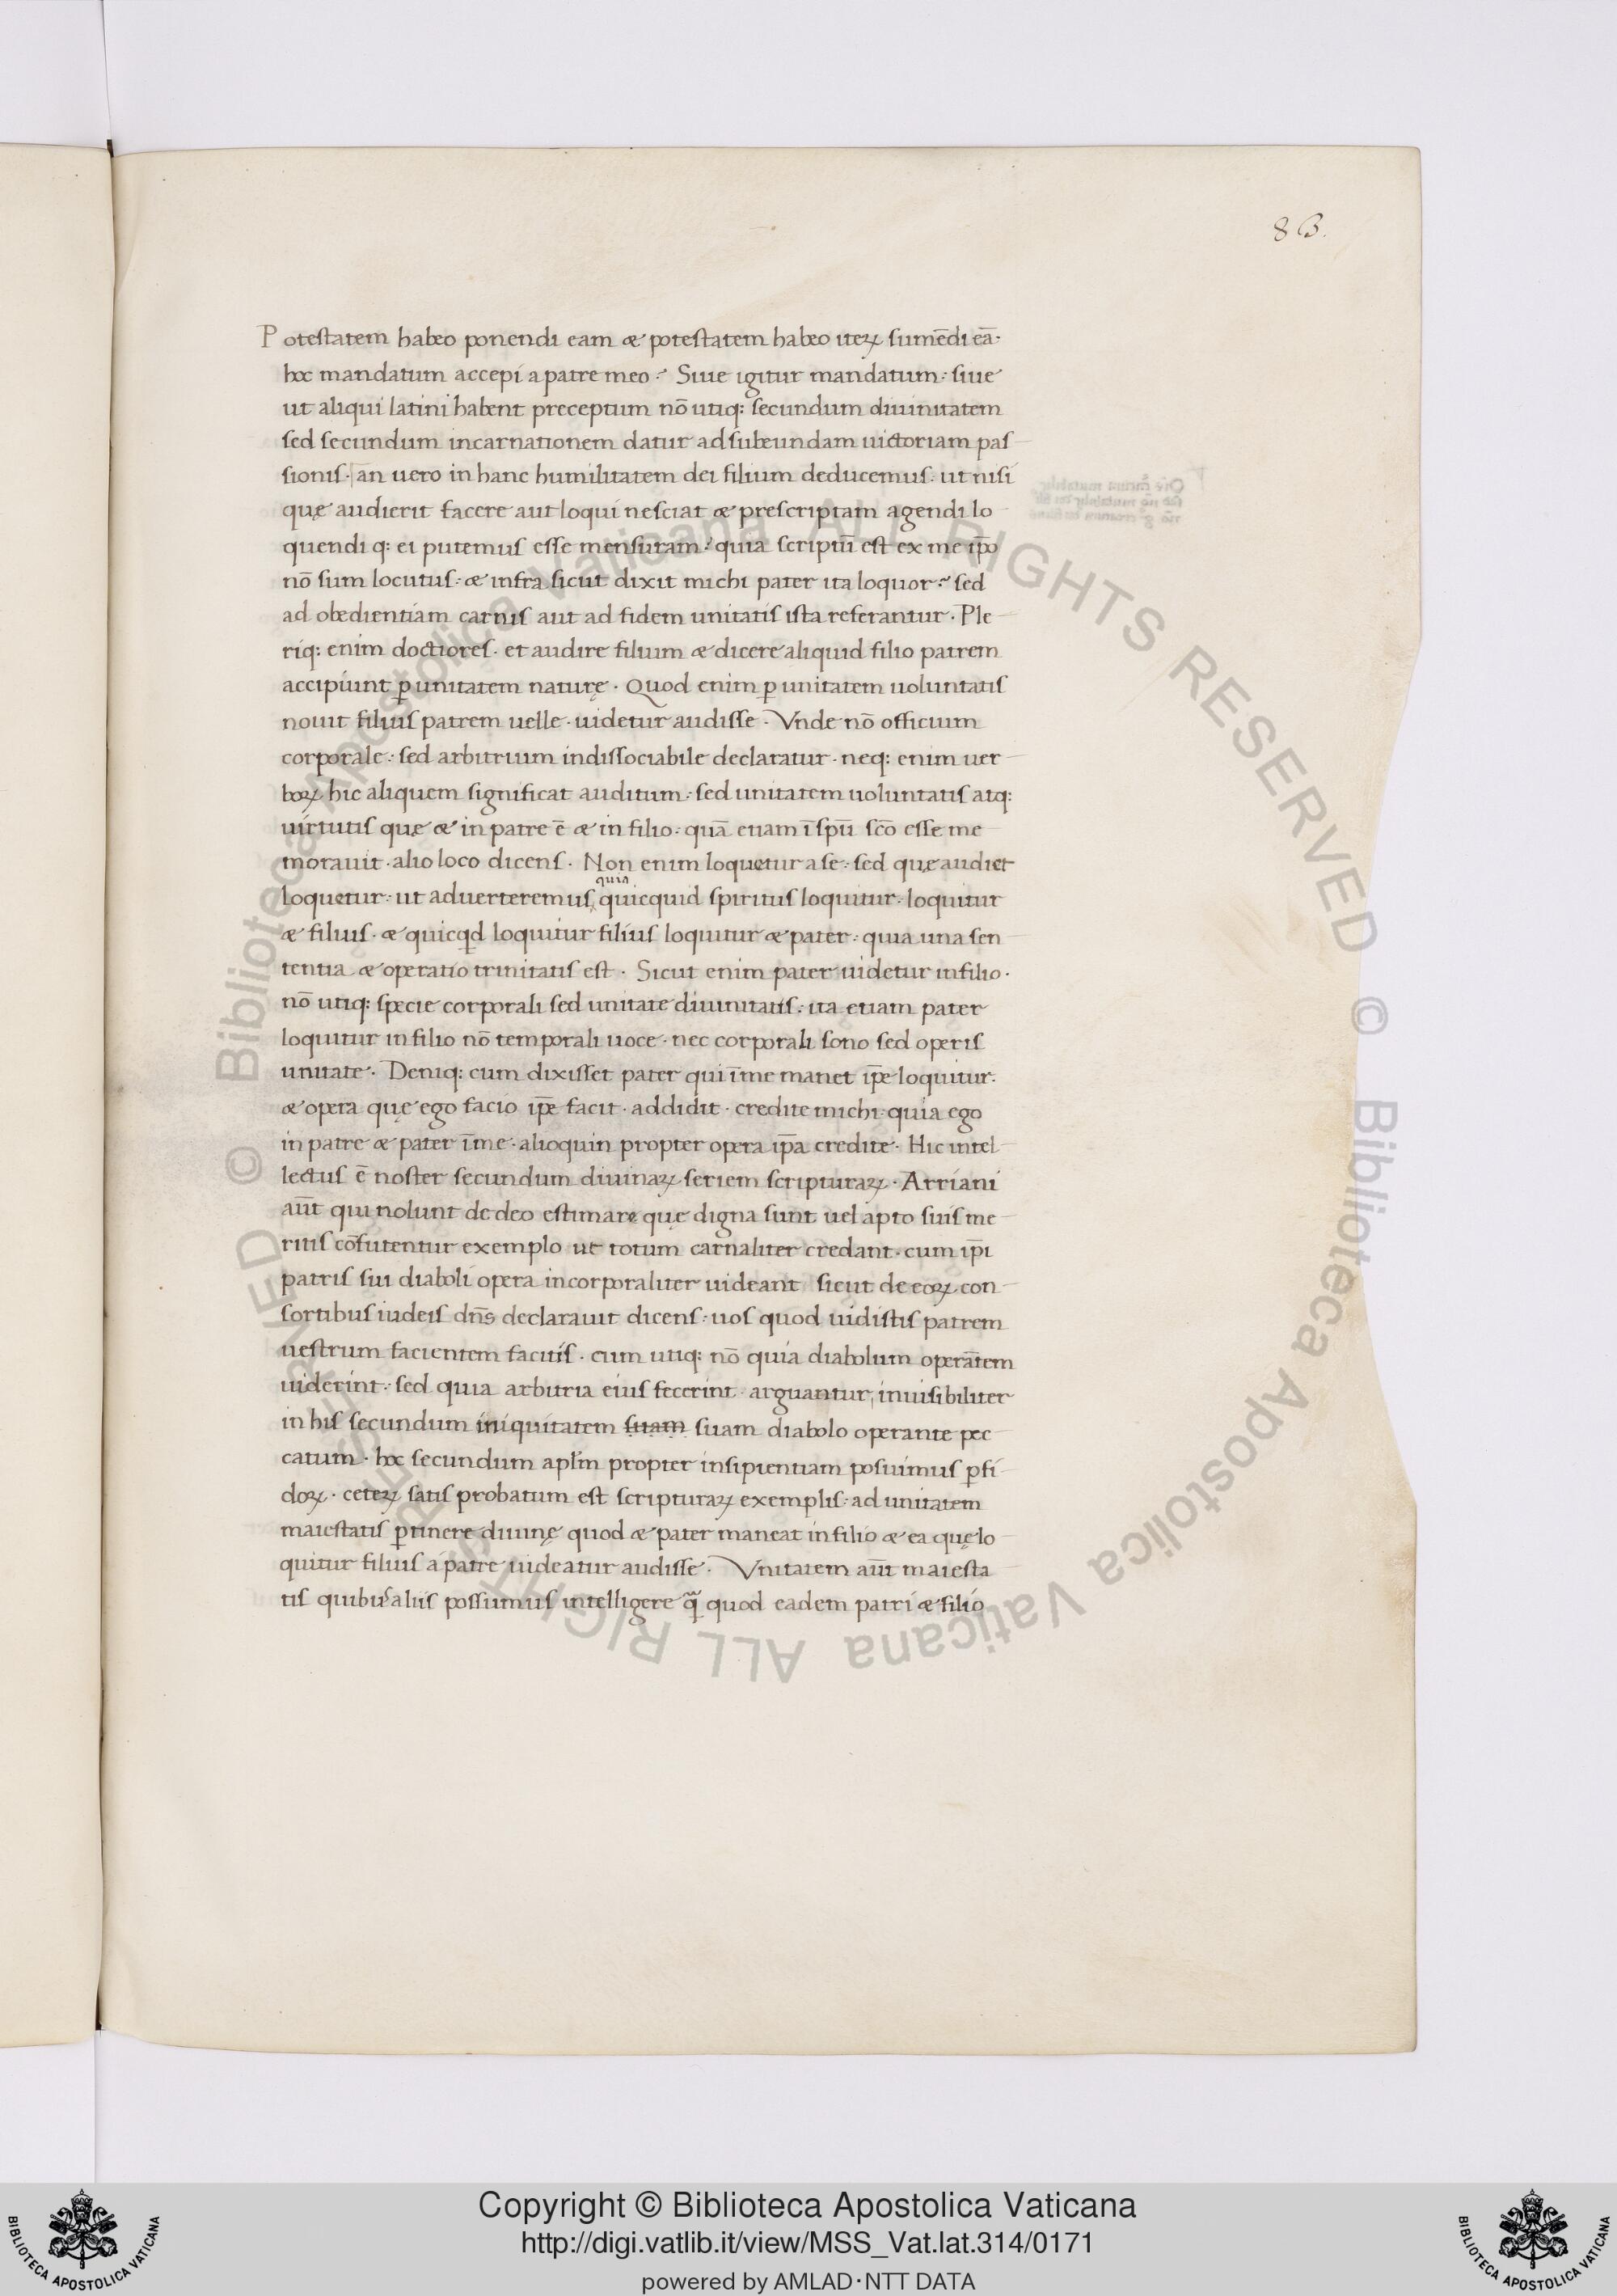 83.
Potestatem habeo ponendi eam & potestatem habeo iteꝝ sumēdi eā·
hoc mandatum accepi a patre meo·́ Siue igitur mandatum·: siue
ut aliqui latini habent preceptum nō utiq: secundum diuinitatem
sed secundum incarnationem datur ad subeundam uictoriam pas
sionis· an uero in hanc humilitatem dei filium deducemus· ut nisi
quę audierit facere aut loqui nesciat & prescriptam agendi lo
quendi q: ei putemus esse mensuram·́ quia scriptū est ex me ip̄o
nō sum locutus·: & infra sicut dixit michi pater ita loquor·́ sed
ad obedientiam carnis aut ad fidem unitatis ista referantur· Ple
riq: enim doctiores· et audire filium & dicere aliquid filio patrem
accipiunt ꝑ unitatem naturę· Quod enim ꝑ unitatem uoluntatis
nouit filius patrem uelle· uidetur audisse· Vnde nō officium
corporale·: sed arbitrium indissociabile declaratur· neq: enim uer
boꝝ hic aliquem significat auditum·: sed unitatem uoluntatis atq:
uirtutis quę & in patre ē & in filio·: quā etiam ī spū scō esse me
morauit· alio loco dicens· Non enim loquetur a se·: sed quę audiet
loquetur·: ut aduerteremus quia quicquid spiritus loquitur· loquitur
& filius· & quicq̇d loquitur filius loquitur & pater·: quia una sen
tentia & operatio trinitatis est· Sicut enim pater uidetur in filio·
nō utiq: specie corporali sed unitate diuinitatis·: ita etiam pater
loquitur in filio nō temporali uoce· nec corporali sono sed operis
unitate· Deniq: cum dixisset pater qui ī me manet ip̄e loquitur·
& opera quę ego facio ip̄e facit· addidit· credite michi· quia ego
in patre & pater ī me· alioquin propter opera ip̄a credite· Hic intel
lectus ē noster secundum diuinaꝝ seriem scripturaꝝ· Arriani
aūt qui nolunt de deo estimare quę digna sunt uel apto suis me
ritis cōfutentur exemplo ut totum carnaliter credant· cum ip̄i
patris sui diaboli opera incorporaliter uideant sicut de eoꝝ con
sortibus iudeis dn̄s declarauit dicens·: uos quod uidistis patrem
uestrum facientem facitis· cum utiq: nō quia diabolum operātem
uiderint·: sed quia arbitria eius fecerint· arguantur, inuisibiliter
in his secundum iniquitatem suam suam diabolo operante pec
catum· hoc secundum apl̄m propter insipientiam posuimus ꝑfi
doꝝ· ceteꝝ satis probatum est scripturaꝝ exemplis·: ad unitatem
maiestatis ꝑtinere diuinę quod & pater maneat in filio & ea quę lo
quitur filius a patre uideatur audisse· Vnitatem aūt maiesta
tis quibus aliis possumus intelligere q̄ quod eadem patri & filio
Copyright © Biblioteca Apostolica Vaticana
http://digi.vatlib.it/view/MSS_Vat.lat.314/0171
powered by AMLAD·NTT DATA
BIBLIOTECA APOSTOLICA VATICANA
BIBLIOTECA APOSTOLICA VATICANA
© Biblioteca Apostolica Vaticana ALL RIGHTS RESERVED © Biblioteca Apostolica Vaticana ALL RIGHTS RESERVED